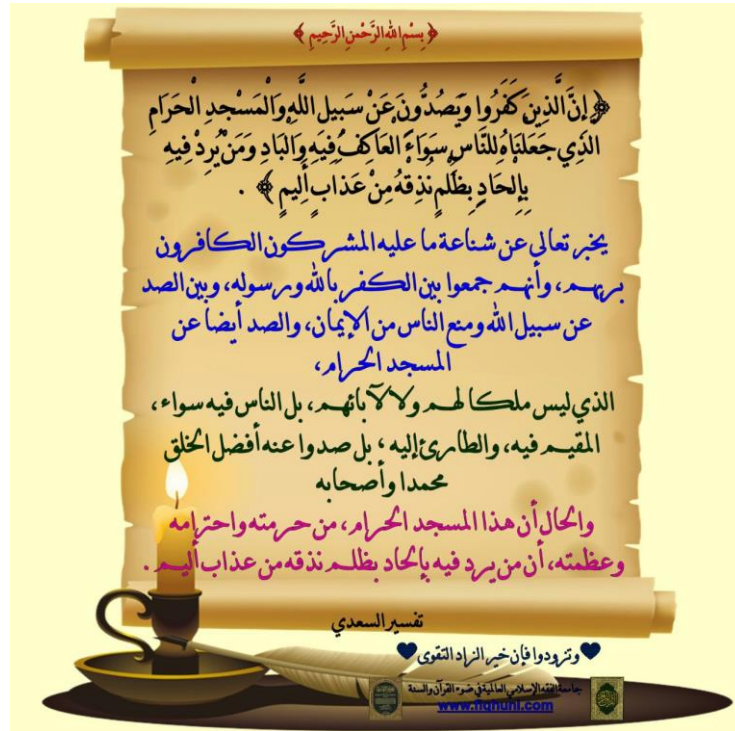 ﴿ بِسْمِ اللهِ الرَّحْمنِ الرَّحِيمِ ﴾
﴿ إِنَّ الَّذِينَ كَفَرُوا وَيَصُدُّونَ عَنْ سَبِيلِ اللَّهِ وَالْمَسْجِدِ الْحَرَامِ
الَّذِي جَعَلْنَاهُ لِلنَّاسِ سَوَاءً الْعَاكِفُ فِيهِ وَالْبَادِ وَمَنْ يُرِدْ فِيهِ
بِإِلْحَادٍ بِظُلْمٍ نُذِقْهُ مِنْ عَذَابٍ أَلِيمٍ ﴾ .
يخبر تعالى عن شناعة ما عليه المشركون الكافرون
بربهم، وأنهم جمعوا بين الكفر بالله ورسوله، وبين الصد
عن سبيل الله ومنع الناس من الإيمان، والصد أيضا عن
المسجد الحرام،
الذي ليس ملكا لهم ولا لآبائهم، بل الناس فيه سواء،
المقيم فيه، والطارئ إليه ، بل صدوا عنه أفضل الخلق
محمدا وأصحابه
والحال أن هذا المسجد الحرام، من حرمته واحترامه
وعظمته، أن من يرد فيه بإلحاد بظلم نذقه من عذاب أليم .
تفسير السعدي
وتزودوا فإن خير الزاد التقوى
جامعة الفقه الإسلامي العالمية في ضوء القرآن والسنة
www.fiqhuni.com